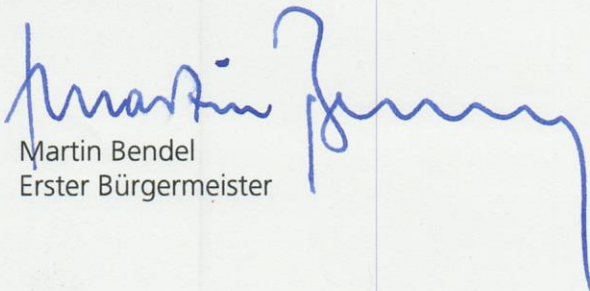 Martin Bendel
Martin Bendel
Erster Bürgermeister